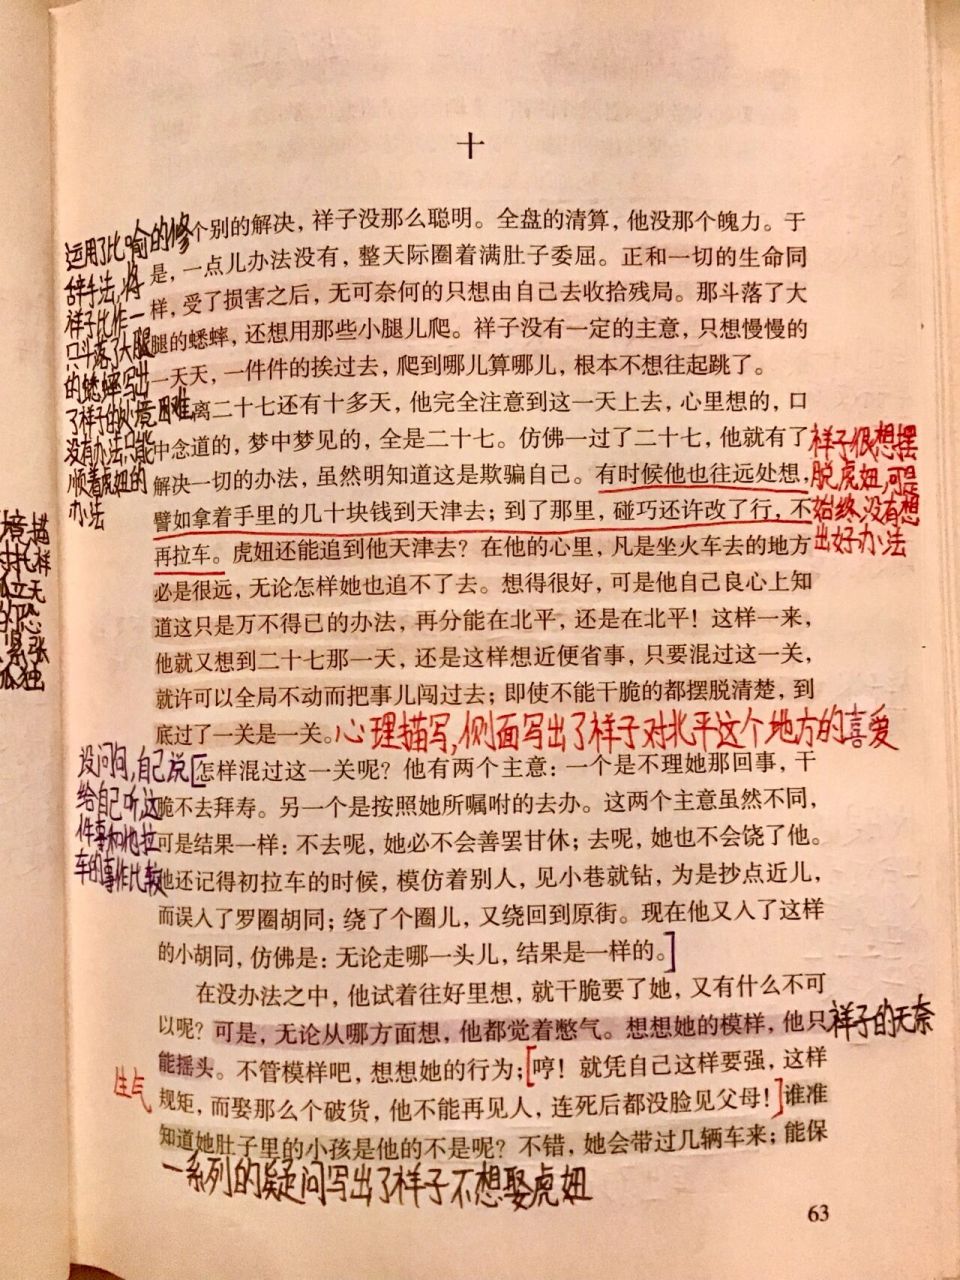 十
个别的解决，祥子没那么聪明。全盘的清算，他没那个魄力。于
是，一点儿办法没有，整天际圈着满肚子委屈。正和一切的生命同
样，受了损害之后，无可奈何的只想由自己去收拾残局。那斗落了大
腿的蟋蟀，还想用那些小腿儿爬。祥子没有一定的主意，只想慢慢的
一天天，一件件的挨过去，爬到哪儿算哪儿，根本不想往起跳了。
离二十七还有十多天，他完全注意到这一天上去，心里想的，口
中念道的，梦中梦见的，全是二十七。仿佛一过了二十七，他就有了
解决一切的办法，虽然明知道这是欺骗自己。有时候他也往远处想，
譬如拿着手里的几十块钱到天津去；到了那里，碰巧还许改了行，不
再拉车。虎妞还能追到他天津去？在他的心里，凡是坐火车去的地方
必是很远，无论怎样她也追不了去。想得很好，可是他自己良心上知
道这只是万不得已的办法，再分能在北平，还是在北平！这样一来，
他就又想到二十七那一天，还是这样想近便省事，只要混过这一关，
就许可以全局不动而把事儿闯过去；即使不能干脆的都摆脱清楚，到
底过了一关是一关。
怎样混过这一关呢？他有两个主意：一个是不理她那回事，干
脆不去拜寿。另一个是按照她所嘱咐的去办。这两个主意虽然不同，
可是结果一样：不去呢，她必不会善罢甘休；去呢，她也不会饶了他。
他还记得初拉车的时候，模仿着别人，见小巷就钻，为是抄点近儿，
而误入了罗圈胡同；绕了个圈儿，又绕回到原街。现在他又入了这样
的小胡同，仿佛是：无论走哪一头儿，结果是一样的。
在没办法之中，他试着往好里想，就干脆要了她，又有什么不可
以呢？可是，无论从哪方面想，他都觉着憋气。想想她的模样，他只
能摇头。不管模样吧，想想她的行为；哼！就凭自己这样要强，这样
规矩，而娶那么个破货，他不能再见人，连死后都没脸见父母！谁准
知道她肚子里的小孩是他的不是呢？不错，她会带过几辆车来；能保
63
运用了比喻的修
辞手法，将
祥子比作一
只斗落了大腿
的蟋蟀写出
了祥子的处境困难，
没有办法只能
顺着虎妞的
办法
境描
衬托祥
孤立无
的恐
紧张
孤独
祥子很想摆
脱虎妞，可是
始终没有想
出好办法
心理描写，侧面写出了祥子对北平这个地方的喜爱
设问问，自己说
给自己听，这
件事和他拉
车的事作比较
祥子的无奈
生气
一系列的疑问写出了祥子不想娶虎妞